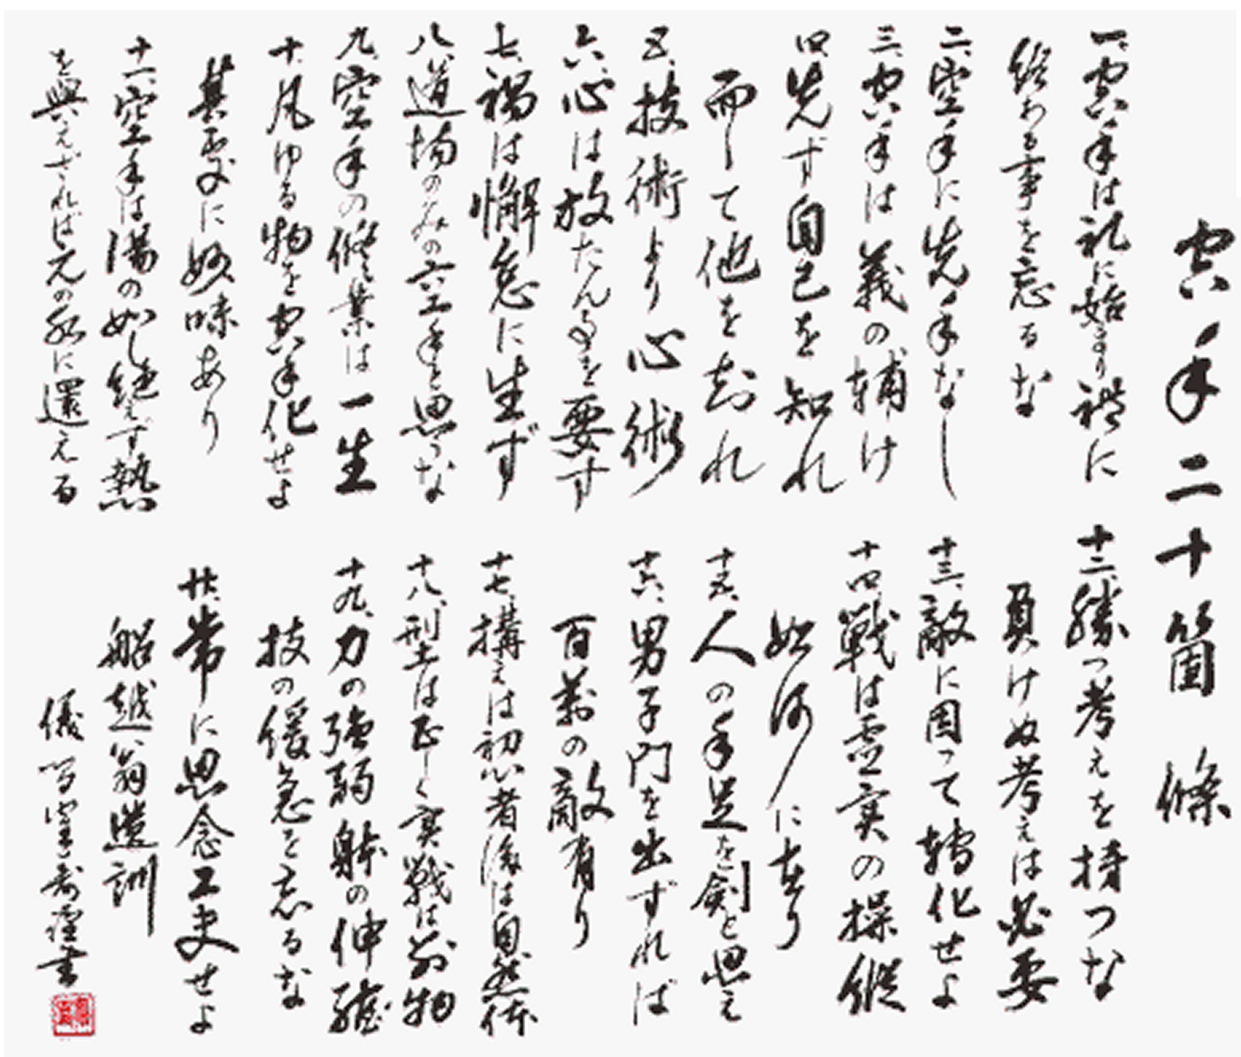 空手二十箇條
一、空手は礼に始まり禮に
終わる事を忘るな
二、空手に先手なし
三、空手は義の輔け
四、先ず自己を知れ
而して他を知れ
五、技術より心術
六、心は放たん事を要す
七、禍は懈怠に生ず
八、道場のみの空手と思うな
九、空手の修業は一生
十、凡ゆる物を空手化せよ
其処に妙味あり
十一、空手は湯の如し絶えず熱
を與えざれば元の水に還える
十二、勝つ考えを持つな
負けぬ考えは必要
十三、敵に因って轉化せよ
十四、戦は虚実の操縦
如何に在り
十五、人の手足を剣と思え
十六、男子門を出ずれば
百萬の敵有り
十七、構えは初心者後は自然体
十八、型は正しく実戦は別物
十九、力の強弱躰の伸縮
技の緩急を忘るな
廿、常に思念工夫せよ
船越翁遺訓
儀 書